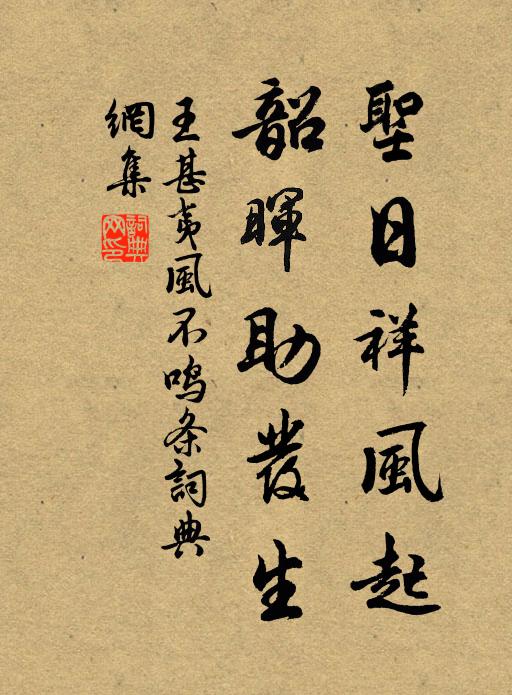 聖日祥風起
韶暉助發生
王甚夷風不鸣条詞典
網集
詞典网印